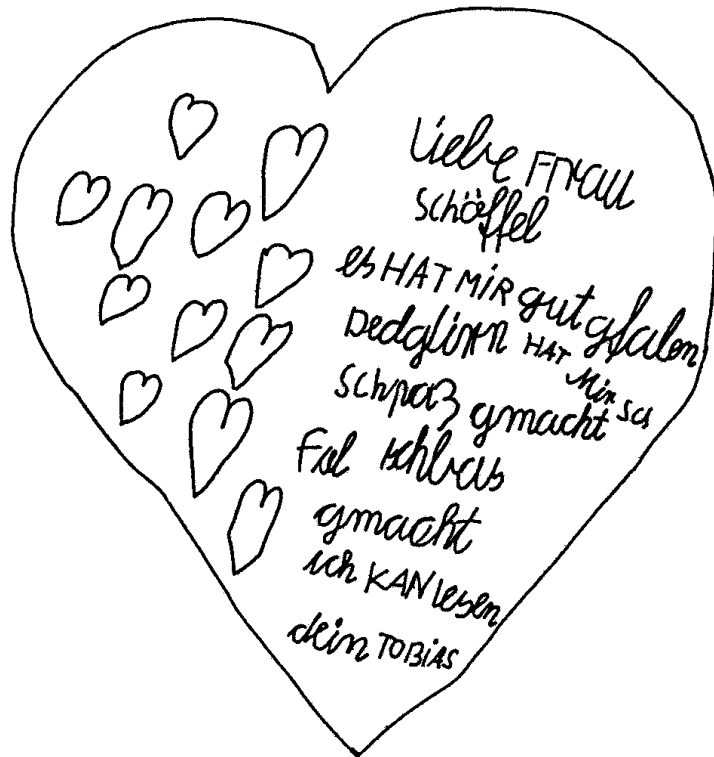 Liebe FRAU
schöffel
es HAT MIR gut gfalen
DedgliXn HAT Mir sch
schpaß gmacht
Fal schbas
gmacht
ich KAN lesen
dein TOBIAS